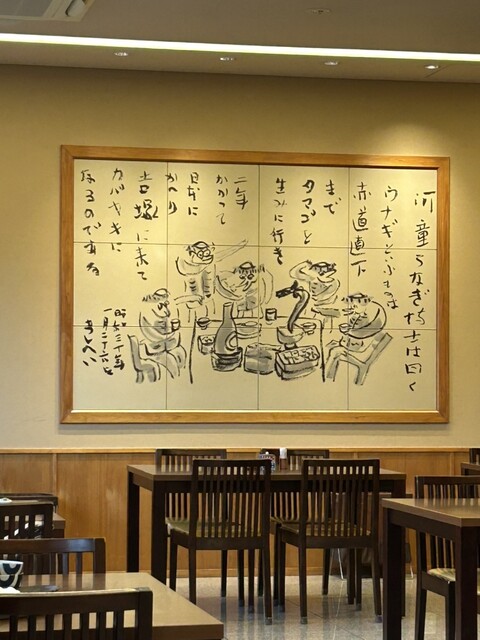 河童うなぎ博士は曰く
ウナギといふものは
赤道直下
まで
タマゴを
生みに行き
二年
かかつて
日本に
かへり
吉塚に来て
カバヤキに
なるのである
昭和三十年
一月二十六日